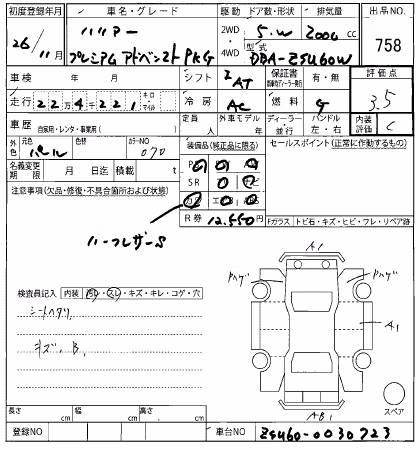 初度登録年月 車名・グレード 駆動 ドア数・形状 排気量 出品NO.
26/11月 ハリアー 2WD 5.W 2000 cc 758
プレミアム アドバンスト PKG 4WD 型式 DBA-ZSU60W
車検 年 月 シフト IAT 保証書 有・無 評価点
走行 22万4千221 キロ マイル 冷房 AC 燃料 G 3.5
車歴 自家用・レンタ・事業用( ) 定員 人 外車モデル 年 ディーラー 並行 ハンドル 左・右 内装評価 C
外色 元色 パール 色替 カラーNO 070 装備品(純正品に限る) セールスポイント(正常に作動するもの)
名義変更期限 月 日迄 積載 t
注意事項(欠品・修復・不具合箇所および状態) SR
ハーフレザーS R券 12,550円 Fガラス トビ石・キズ・ヒビ・ワレ・リペア跡
A1
Pハゲ Pハゲ
検査員記入 内装 汚レ・スレ・キズ・キレ・コゲ・穴
シートヘタリ
A1
キズ、B、
スペア
AB1
長さ cm 幅 cm 高さ cm
登録NO 車台NO ZSU60-0030723